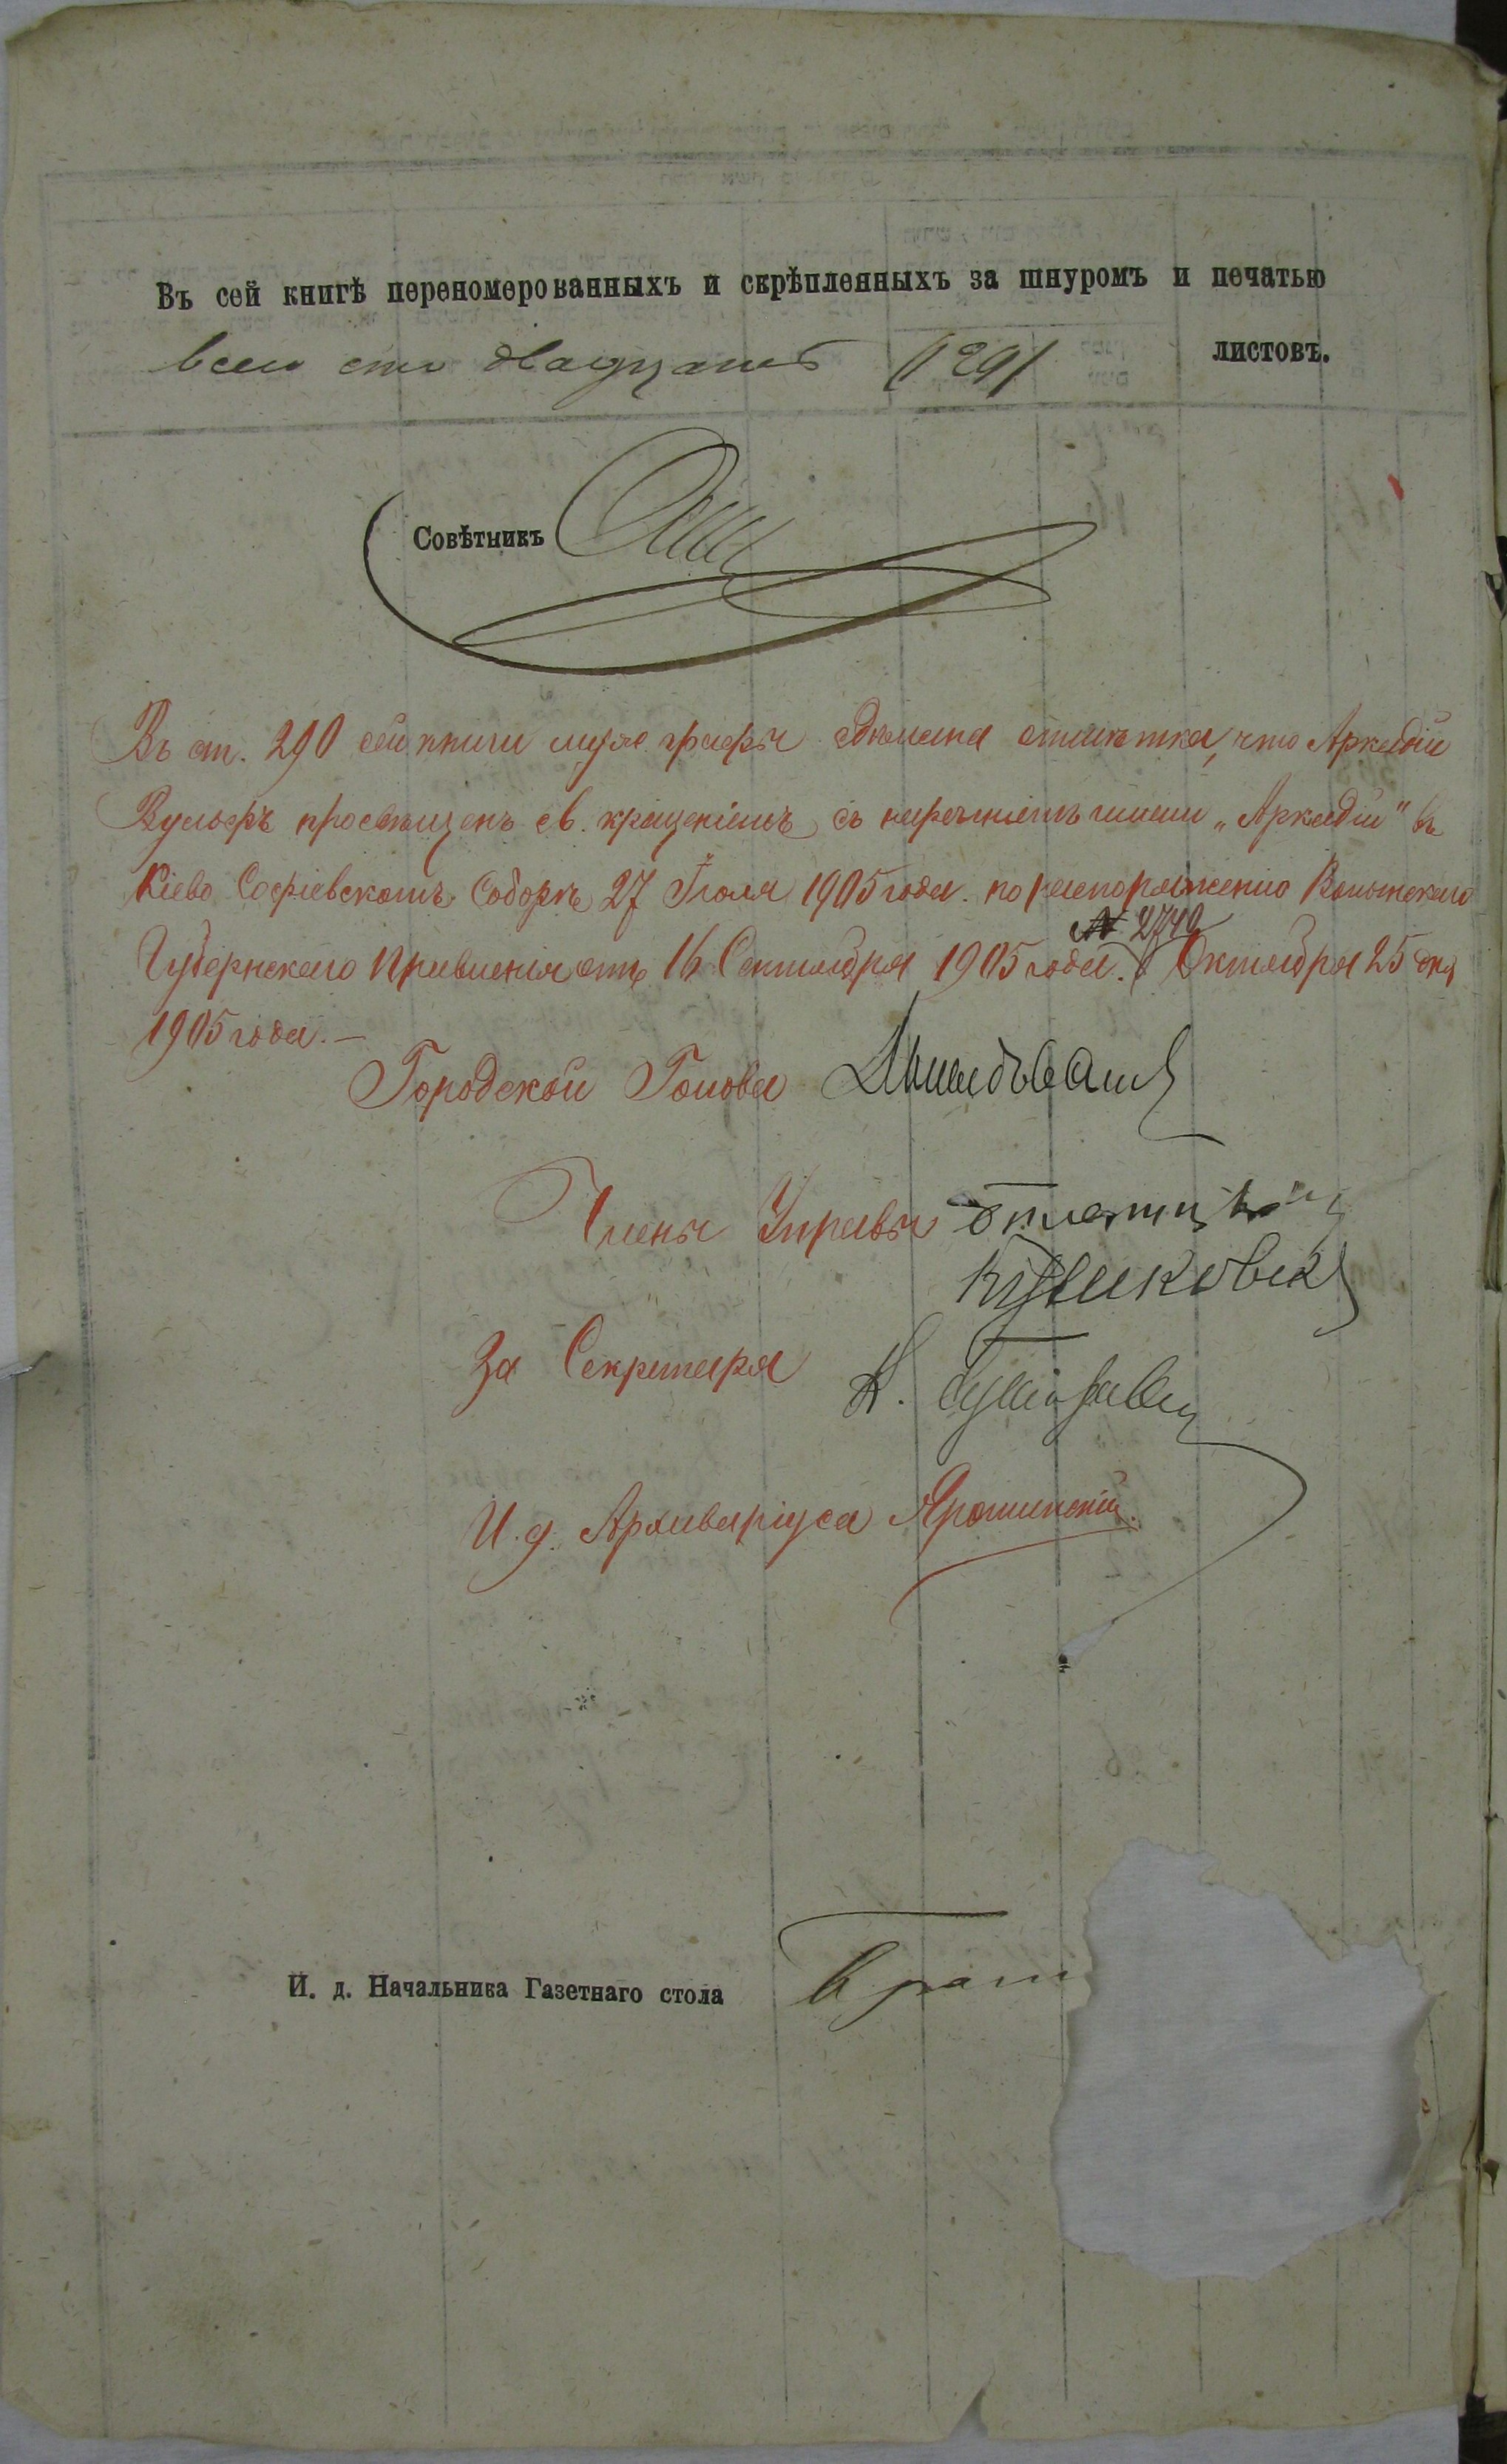 Въ сей книгѣ переномерованныхъ и скрѣпленныхъ за шнуромъ и печатью
всего сто двадцать /120/ листовъ.
Совѣтникъ
Въ ст. 290 сей книги муж. графы сдѣлана отмѣтка, что Аркадій
Вульфъ просвѣщенъ св. крещеніемъ съ нареченіемъ имени „Аркадій" въ
Кіево Софіевскомъ Соборѣ 27 Іюля 1905 года по распоряженію Волынскаго
№ 2740
Губернскаго Правленія отъ 16 Сентября 1905 года. Октября 25 дня
1905 года. —
Городской Голова
Члены Управы
За Секретаря
И. д. Архиваріуса Ярошинскій.
И. д. Начальника Газетнаго стола